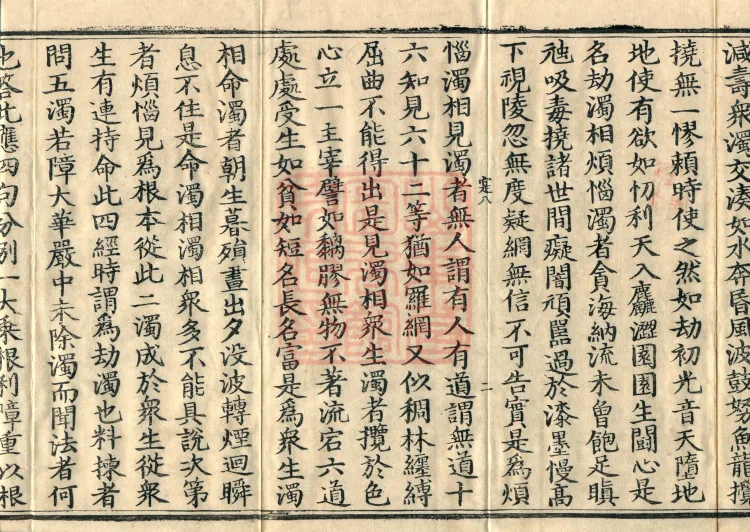 減壽衆濁交湊如水奔昏風波鼓努魚龍攪
撓無一憀賴時使之然如劫初光音天墮地
地使有欲如忉利天入麤澀園園生鬪心是
名劫濁相煩惱濁者貪海納流未曾飽足瞋
虵吸毒撓諸世間癡闇頑嚚過於漆墨慢髙
下視陵忽無度疑網無信不可告實是爲煩
定八
二
惱濁相見濁者無人謂有人有道謂無道十
六知見六十二等猶如羅網又似稠林纏縛
屈曲不能得出是見濁相衆生濁者攬於色
心立一主宰譬如黐膠無物不著流宕六道
處處受生如貧如短名長名富是爲衆生濁
相命濁者朝生暮殞晝出夕没波轉煙迴瞬
息不住是命濁相濁相衆多不能具說次第
者煩惱見爲根本從此二濁成於衆生從衆
生有連持命此四經時謂爲劫濁也料揀者
問五濁若障大華嚴中未除濁而聞法者何
也答此應四句分別一大乘根利障重以根